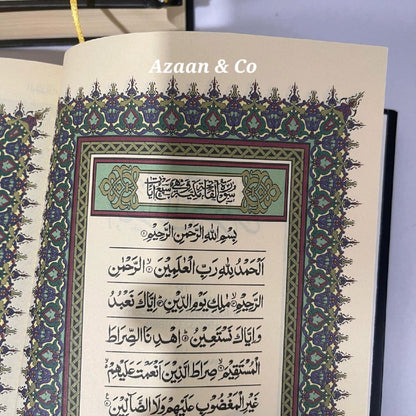 Azaan & Co
سورة الفاتحة مكية وهي سبع آيات
بِسْمِ اللهِ الرَّحْمٰنِ الرَّحِيْمِ
اَلْحَمْدُ لِلّٰهِ رَبِّ الْعٰلَمِيْنَ ۙ الرَّحْمٰنِ
الرَّحِيْمِ ۙ مٰلِكِ يَوْمِ الدِّيْنِ ۗ اِيَّاكَ نَعْبُدُ
وَاِيَّاكَ نَسْتَعِيْنُ ۗ اِهْدِنَا الصِّرَاطَ
الْمُسْتَقِيْمَ ۙ صِرَاطَ الَّذِيْنَ اَنْعَمْتَ عَلَيْهِمْ
غَيْرِ الْمَغْضُوْبِ عَلَيْهِمْ وَلَا الضَّآلِّيْنَ